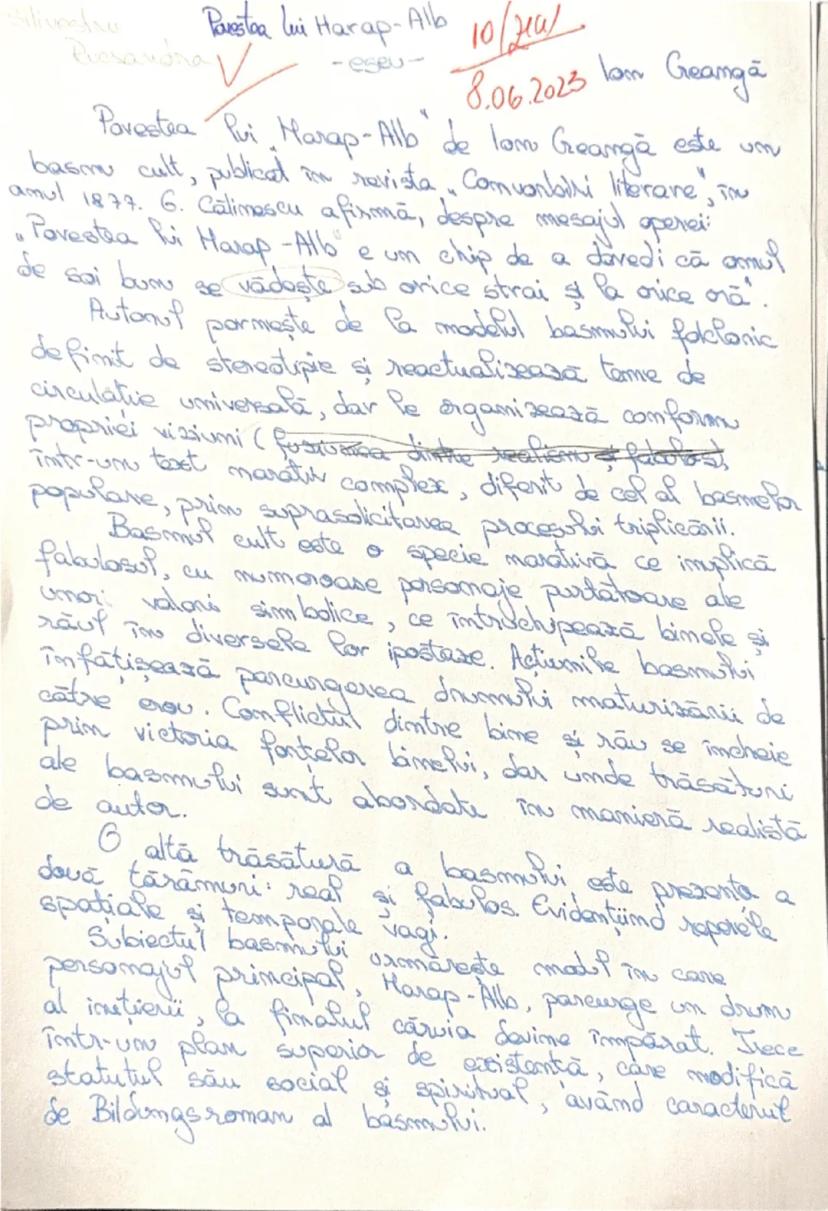 Silivestru
Ruxandra
Povestea lui Harap-Alb
-eseu-
10/zece/
8.06.2023
Ion Creangă
Povestea lui „Harap-Alb" de Ion Creangă este un
basm cult, publicat în revista „Convorbiri literare", în
anul 1877. G. Călinescu afirmă, despre mesajul operei:
„Povestea lui Harap-Alb" e un chip de a dovedi că omul
de soi bun se vădește sub orice strai și la orice oră".
Autorul pornește de la modelul basmului folcloric
definit de stereotipie și reactualizează teme de
circulație universală, dar le organizează conform
propriei viziuni (fuziunea dintre realism și fabulos),
într-un text narativ complex, diferit de cel al basmelor
populare, prin suprasolicitarea procesului triplicării.
Basmul cult este o specie narativă ce implică
fabulosul, cu numeroase personaje purtătoare ale
unor valori simbolice, ce întruchipează binele și
răul în diversele lor ipostaze. Acțiunile basmului
înfățișează parcurgerea drumului maturizării de
către erou. Conflictul dintre bine și rău se încheie
prin victoria forțelor binelui, dar unde trăsături
ale basmului sunt abordate în manieră realistă
de autor.
O altă trăsătură a basmului este prezența a
două tărâmuri: real și fabulos. Evidențiind reperele
spațiale și temporale vagi.
Subiectul basmului urmărește modul în care
personajul principal, Harap-Alb, parcurge un drum
al inițierii, la finalul căruia devine împărat. Trece
într-un plan superior de existență, care modifică
statutul său social și spiritual, având caracterul
de Bildungsroman al basmului.